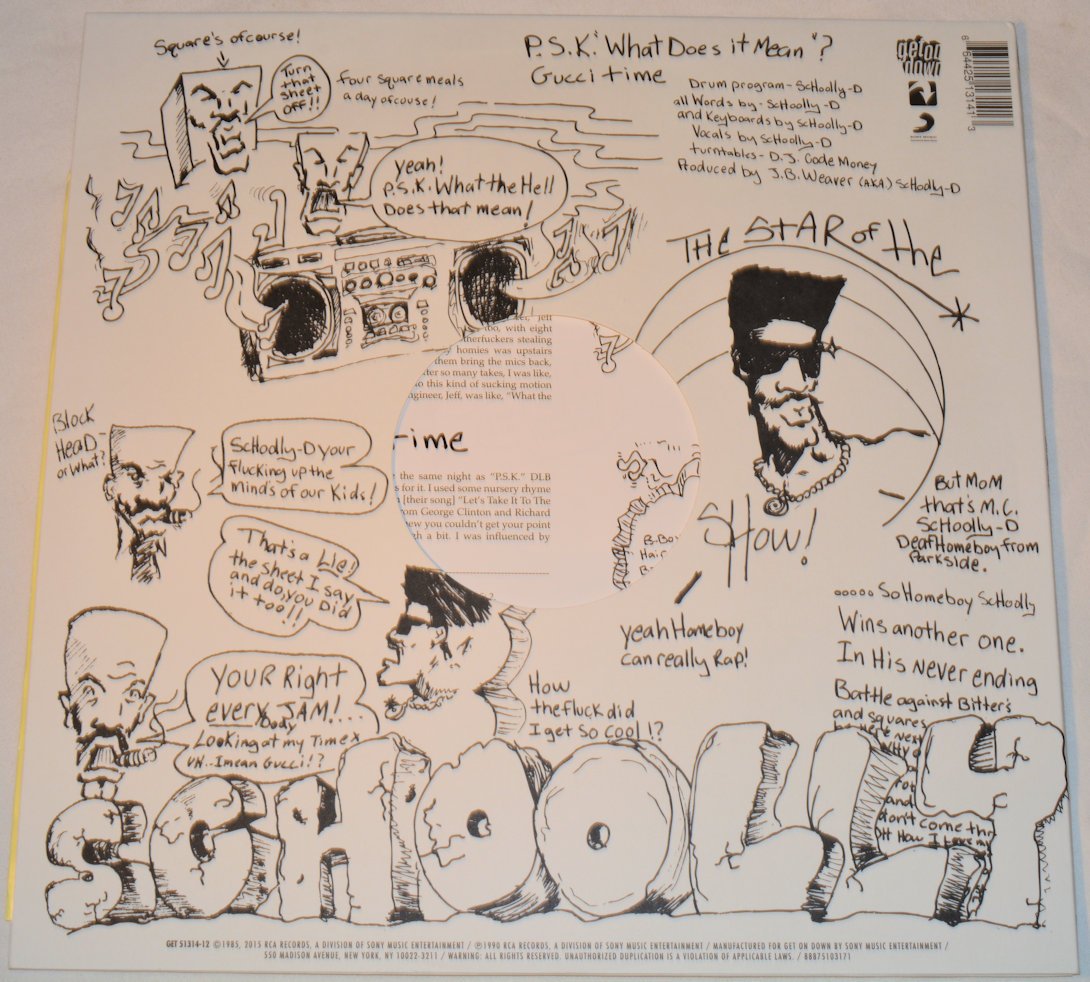 Square's ofcourse!
Turn
that
sheet
OFF!!
four squaremeals
a day ofcouse!
yeah!
P.S.K. What the Hell
Does that mean!
P.S.K. "What Does it Mean"?
Gucci time
Drum program - ScHoolly-D
all Words by - ScHoolly-D
and Keyboards by ScHoolly-D
Vocals by ScHoolly-D
turntables - D.J. Code Money
Produced by J.B. Weaver (AKA) ScHoolly-D
get on
down
6 64425 13141 3
THE StAR of the
SHow!
Jeff
too, with eight
therfuckers stealing
homies was upstairs
them bring the mics back,
so many takes, I was like,
this kind of sucking motion
Jeff, was like, "What the
ime
the same night as "P.S.K." DLB
for it. I used some nursery rhyme
[their song] "Let's Take It To The
George Clinton and Richard
you couldn't get your point
a bit. I was influenced by
B-Boy
Hair
Block
HeaD-
or what?
ScHoolly-D your
flucking up the
Minds of our Kids!
That's a Lie!
the sheet I say
and do, you Did
it too!!
YOUR Right
everybody JAM!...
Looking at my Timex
UH.. I mean Gucci!?
How
the fluck did
I get So Cool!?
yeah Homeboy
can really Rap!
But MoM
that's M.C.
ScHoolly-D
Deaf Homeboy from
Parkside.
ooooo So Homeboy ScHoolly
Wins another one.
In His Never ending
Battle against Bitter's
and squares
and
don't come
How I Love
SCHOOLLY
GET 51314-12 ©1985, 2015 RCA RECORDS, A DIVISION OF SONY MUSIC ENTERTAINMENT / ℗1990 RCA RECORDS, A DIVISION OF SONY MUSIC ENTERTAINMENT / MANUFACTURED FOR GET ON DOWN BY SONY MUSIC ENTERTAINMENT /
550 MADISON AVENUE, NEW YORK, NY 10022-3211 / WARNING: ALL RIGHTS RESERVED. UNAUTHORIZED DUPLICATION IS A VIOLATION OF APPLICABLE LAWS. / 88875103171